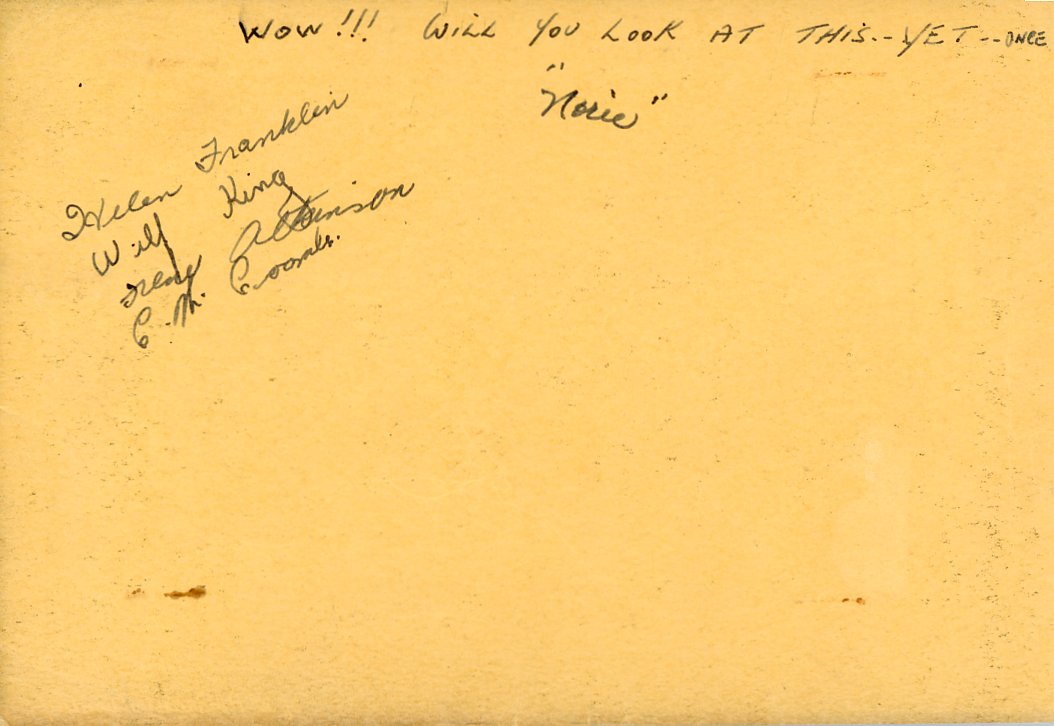 WOW!!! WILL YOU LOOK AT THIS--YET--ONCE
"Norie"
Helen Franklin
Wilf King
Irene Atkinson
C.M. Coombs.